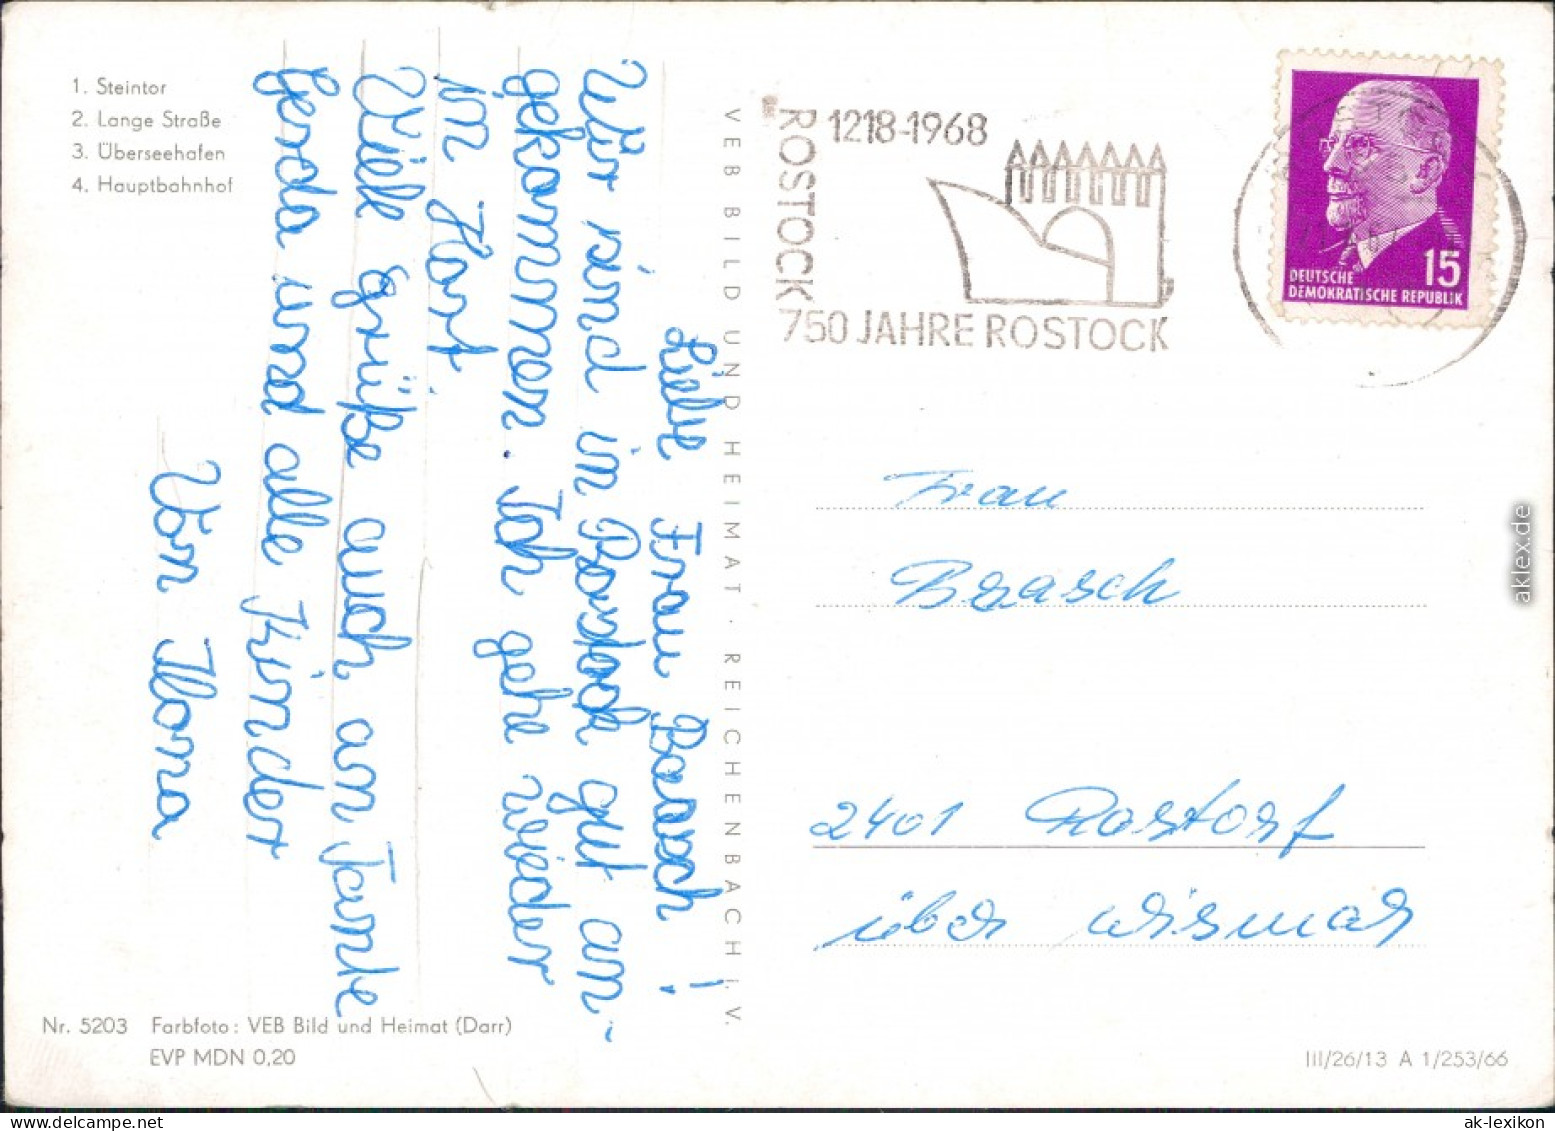 1. Steintor
2. Lange Straße
3. Überseehafen
4. Hauptbahnhof
Liebe Frau Brasch!
Wir sind in Rostock gut an-
gekommen. Ich gehe wieder
im Hort.
Viele Grüße auch an Tante
Gerda und alle Kinder
Von Ilona
VEB BILD UND HEIMAT · REICHENBACH i. V.
Nr. 5203 Farbfoto: VEB Bild und Heimat (Darr)
EVP MDN 0,20
ROSTOCK
1218-1968
750 JAHRE ROSTOCK
15
DEUTSCHE
DEMOKRATISCHE REPUBLIK
Frau
Brasch
2401 Rastorf
über Wismar
III/26/13 A 1/253/66
aklex.de
ak-lexikon